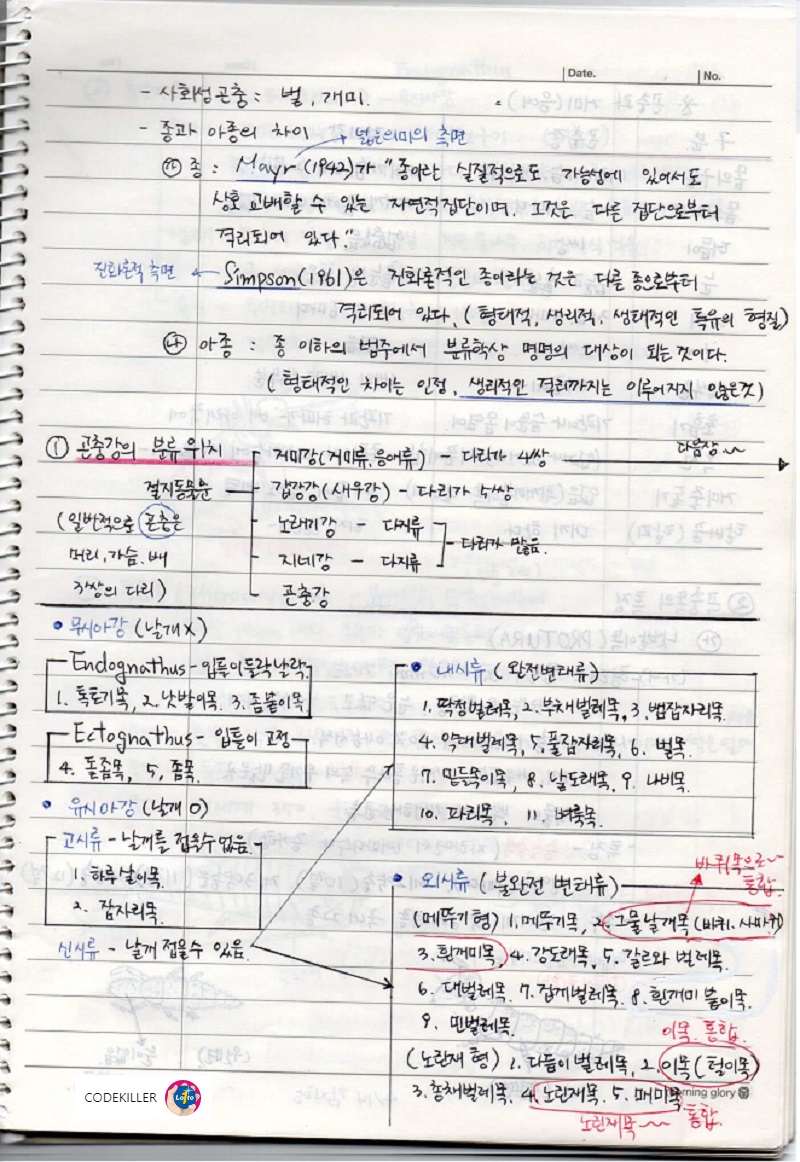 Date.
No.
- 사회성곤충 : 벌, 개미.
- 종과 아종의 차이
넓은의미의 측면
㉮ 종 : Mayr(1942)가 "종이란 실질적으로도 가능성에 있어서도
상호교배할 수 있는 자연적집단이며. 그것은 다른 집단으로부터
격리되어 있다."
진화론적 측면
Simpson(1961)은 진화론적인 종이라는 것은 다른 종으로부터
격리되어 있다. (형태적, 생리적, 생태적인 특유의 형질)
㉯ 아종 : 종 이하의 범주에서 분류학상 명명의 대상이 되는것이다.
(형태적인 차이는 인정, 생리적인 격리까지는 이루어지지 않은것)
① 곤충강의 분류위치
거미강(거미류, 응애류) - 다리가 4쌍
다음장~
절지동물문
갑강강(새우강) - 다리가 5쌍
(일반적으로 곤충은
머리, 가슴, 배
3쌍의 다리)
노래기강 - 다지류
지네강 - 다지류
다리가 많음.
곤충강
• 무시아강 (날개X)
Endognathus - 입틀이들락날락.
1. 톡토기목, 2. 낫발이목. 3. 좀붙이목.
Ectognathus - 입틀이 고정
4. 돌좀목, 5. 좀목.
• 유시아강 (날개 O)
고시류 - 날개를 접을수 없음.
1. 하루살이목.
2. 잠자리목.
신시류 - 날개 접을수 있음.
• 내시류 (완전변태류)
1. 딱정벌레목, 2. 부채벌레목, 3. 뱀잠자리목.
4. 약대벌레목, 5. 풀잠자리목, 6. 벌목.
7. 밑들목이목, 8. 날도래목, 9. 나비목.
10. 파리목, 11. 벼룩목.
바퀴목으로~
통합.
• 외시류 (불완전 변태류)
(메뚜기형) 1. 메뚜기목, 2. 그물날개목 (바퀴, 사마귀)
3. 흰개미목, 4. 강도래목, 5. 갈르와 벌레목.
6. 대벌레목. 7. 집게벌레목. 8. 흰개미 붙이목.
9. 민벌레목.
이목. 통합.
(노린재 형) 1. 다듬이벌레목, 2. 이목 (털이목)
3. 총채벌레목. 4. 노린재목. 5. 매미목.
노린재목~ 통합.
morning glory
CODEKILLER
Lotto